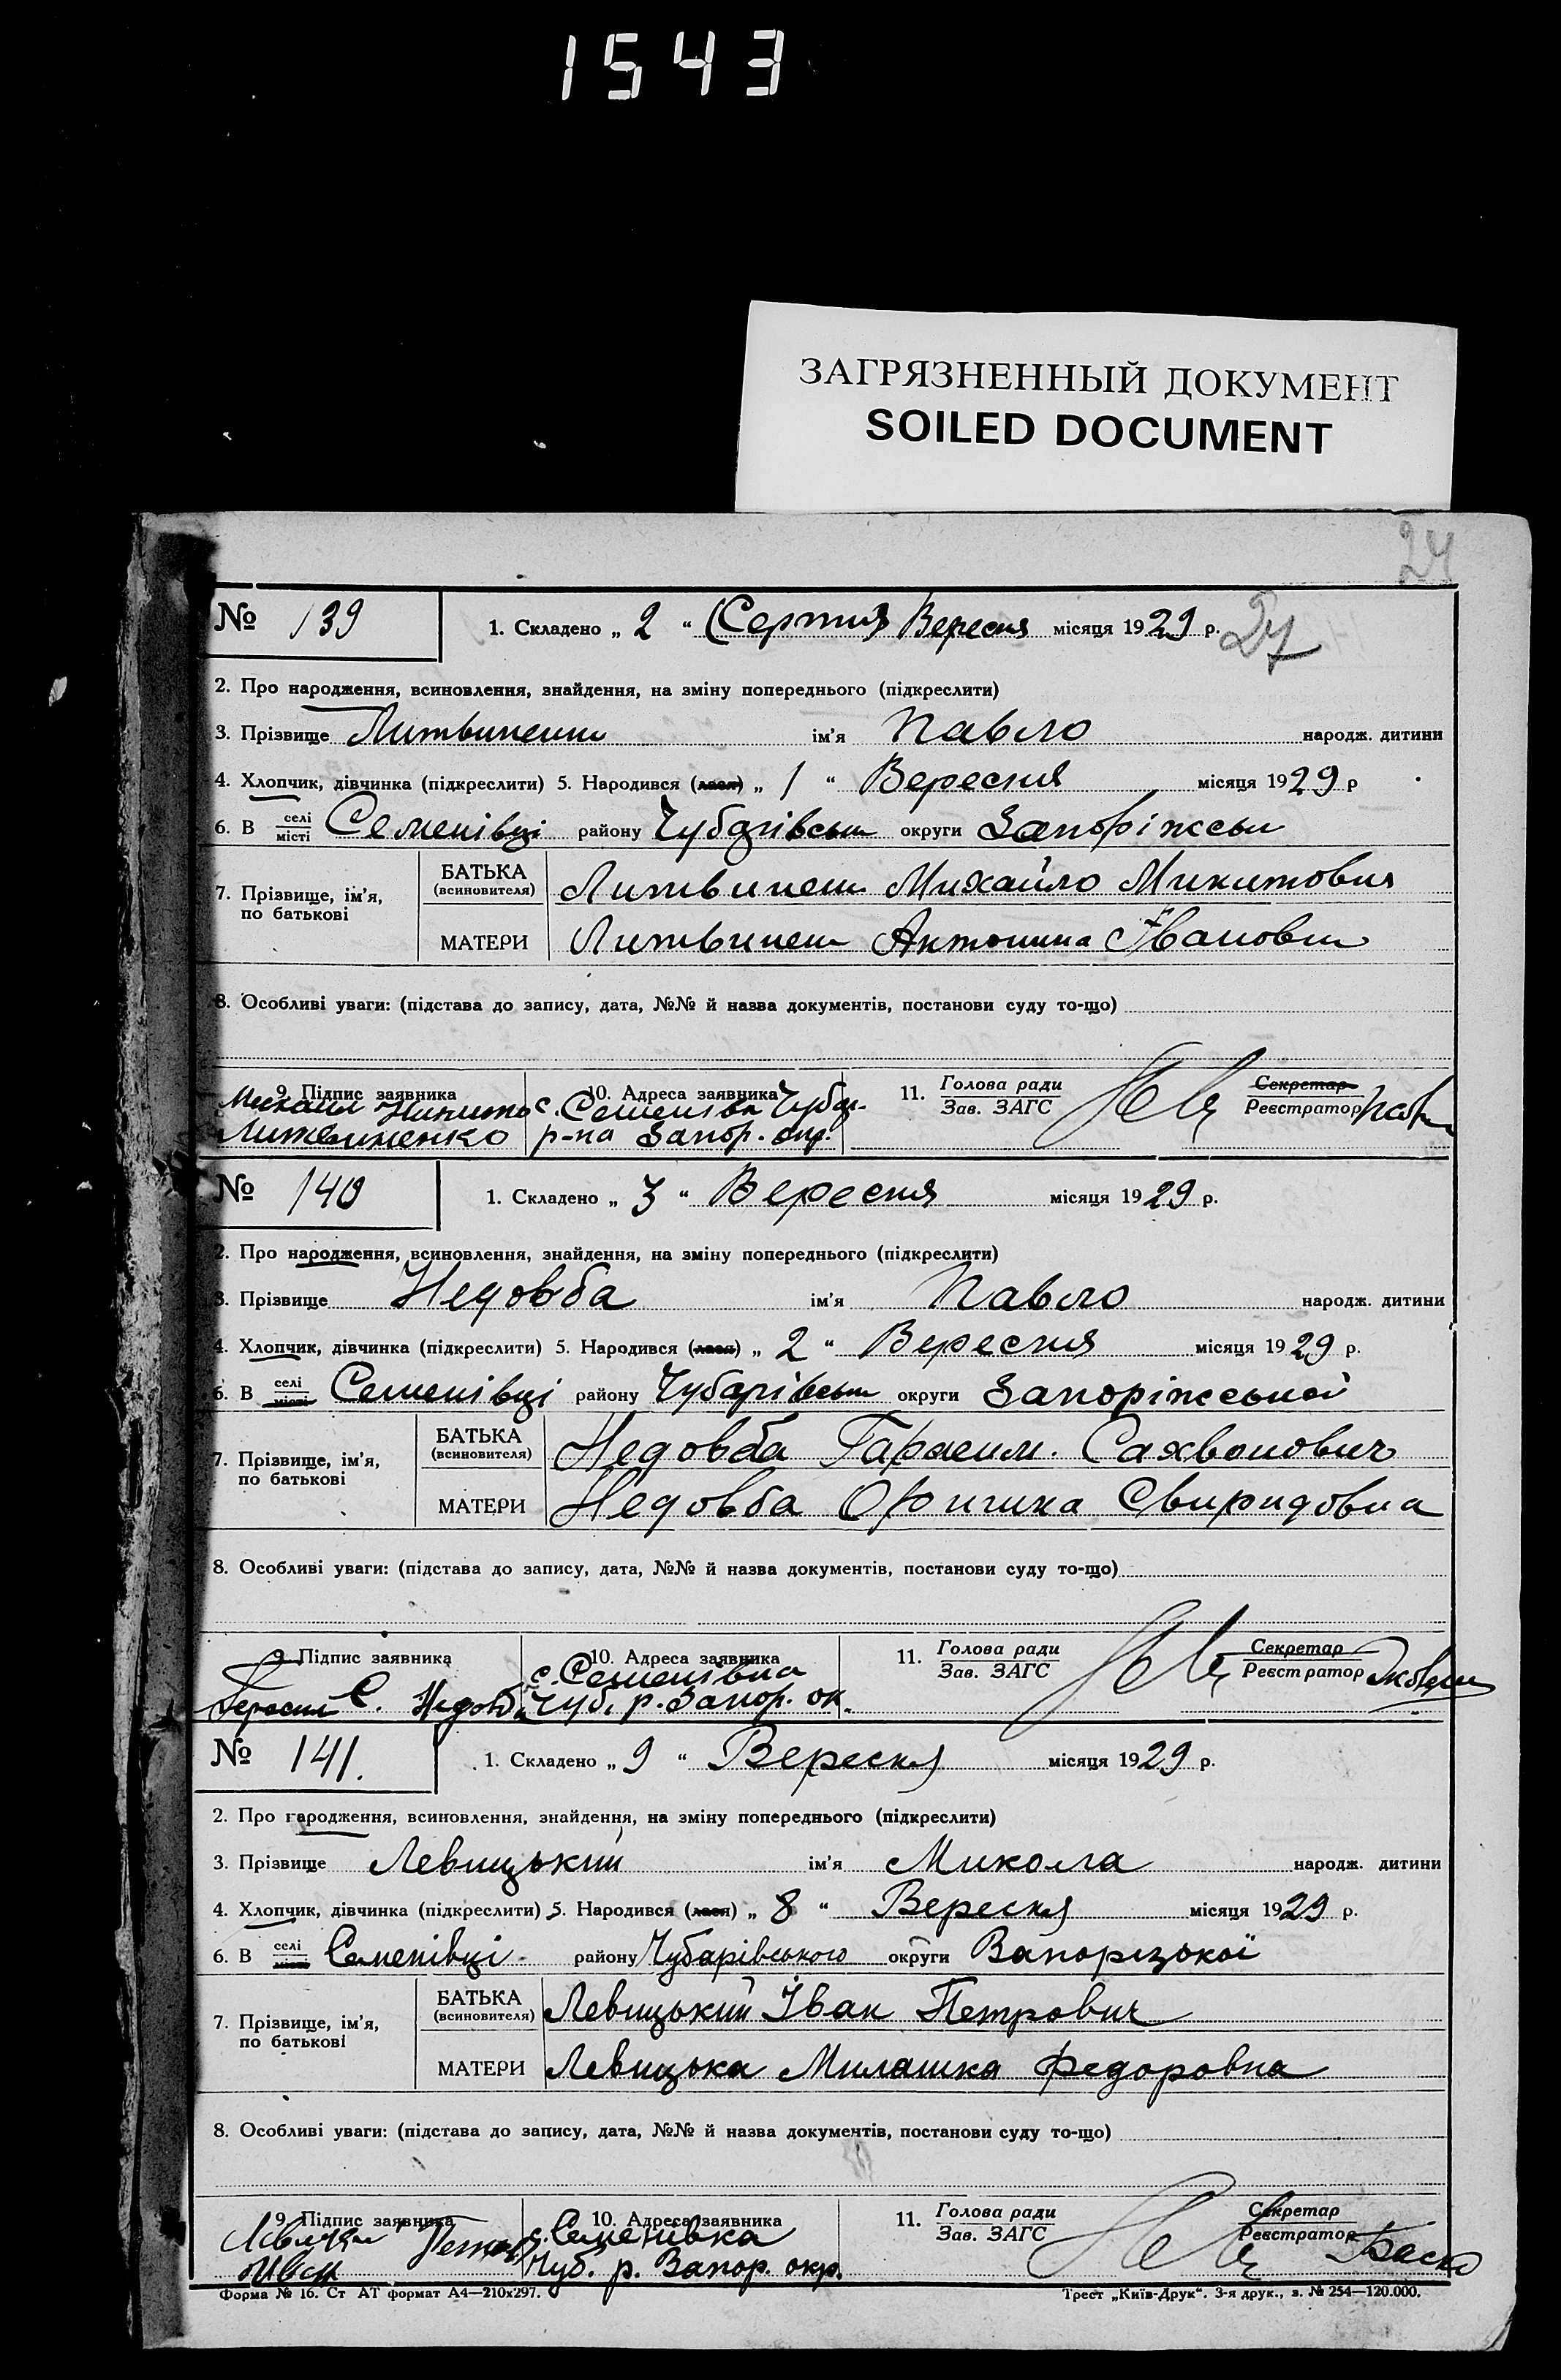 1543
ЗАГРЯЗНЕННЫЙ ДОКУМЕНТ
SOILED DOCUMENT
24
№ 139 1. Складено „ 2 “ (Серпня) Вересня місяця 1929 р. 24
2. Про народження, всиновлення, знайдення, на зміну попереднього (підкреслити)
3. Прізвище Литвиненко ім'я Павло народж. дитини
4. Хлопчик, дівчинка (підкреслити) 5. Народився (лася) „ 1 “ Вересня місяця 1929 р
6. В селі місті Семенівці району Чубарівськ округи Запоріжськ
7. Прізвище, ім'я, по батькові БАТЬКА (всиновителя) Литвиненк Михайло Микитович
МАТЕРИ Литвиненк Антонина Івановн
8. Особливі уваги: (підстава до запису, дата, №№ й назва документів, постанови суду то-що)
9. Підпис заявника 10. Адреса заявника 11. Голова ради Зав. ЗАГС Секретар Реєстратор
Михаил Никито с. Семенівка Чубар.
Литвиненко р-на Запор. окр.
№ 140 1. Складено „ 3 “ Вересня місяця 1929 р.
2. Про народження, всиновлення, знайдення, на зміну попереднього (підкреслити)
3. Прізвище Недовба ім'я Павло народж. дитини
4. Хлопчик, дівчинка (підкреслити) 5. Народився (лася) „ 2 “ Вересня місяця 1929 р.
6. В селі місті Семенівці району Чубарівськ округи Запоріжської
7. Прізвище, ім'я, по батькові БАТЬКА (всиновителя) Недовба Гарасим. Сахвонович
МАТЕРИ Недовба Оришка Свиридовна
8. Особливі уваги: (підстава до запису, дата, №№ й назва документів, постанови суду то-що)
9. Підпис заявника 10. Адреса заявника 11. Голова ради Зав. ЗАГС Секретар Реєстратор
с. Семенівка
Герасим С. Недовб Чуб. р. Запор. ок.
№ 141. 1. Складено „ 9 “ Вересня місяця 1929 р.
2. Про народження, всиновлення, знайдення, на зміну попереднього (підкреслити)
3. Прізвище Левицький ім'я Микола народж. дитини
4. Хлопчик, дівчинка (підкреслити) 5. Народився (лася) „ 8 “ Вересня місяця 1929 р.
6. В селі місті Семенівці району Чубарівського округи Запорізької
7. Прізвище, ім'я, по батькові БАТЬКА (всиновителя) Левицький Іван Петрович
МАТЕРИ Левицька Милашка Федоровна
8. Особливі уваги: (підстава до запису, дата, №№ й назва документів, постанови суду то-що)
9. Підпис заявника 10. Адреса заявника 11. Голова ради Зав. ЗАГС Секретар Реєстратор
с. Семенівка
Иван Чуб. р. Запор. окр.
Форма № 16. Ст АТ формат А4—210х297. Трест „Київ-Друк“. 3-я друк., з. № 254—120.000.